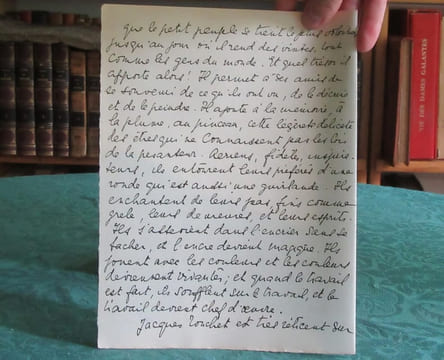 que le petit peuple se tient le plus
jusqu'au jour où il rend des visites, tout
comme les gens du monde. Et quel trésor il
apporte alors! Il permet à ses amis de
se souvenir de ce qu'ils ont vu, de le décrire
et de le peindre. Il ajoute à la mémoire, à
la plume, au pinceau, cette légèreté délicate
des êtres qui ne connaissent pas les lois
de la pesanteur. Aériens, fidèles,
ils entourent leurs préférés d'une
ronde qui est aussi une guirlande. Ils
enchantent de leurs pas, fins comme
grêle, leurs demeures, et leurs esprits.
Ils s'assoient dans l'encrier sans se
tacher, et l'encre devient magique. Ils
jouent avec les couleurs et les couleurs
deviennent vivantes; et quand le travail
est fait, ils soufflent sur le travail, et le
travail devient chef d'œuvre.
Jacques est très réticent sur
VIE DES DAMES GALANTES